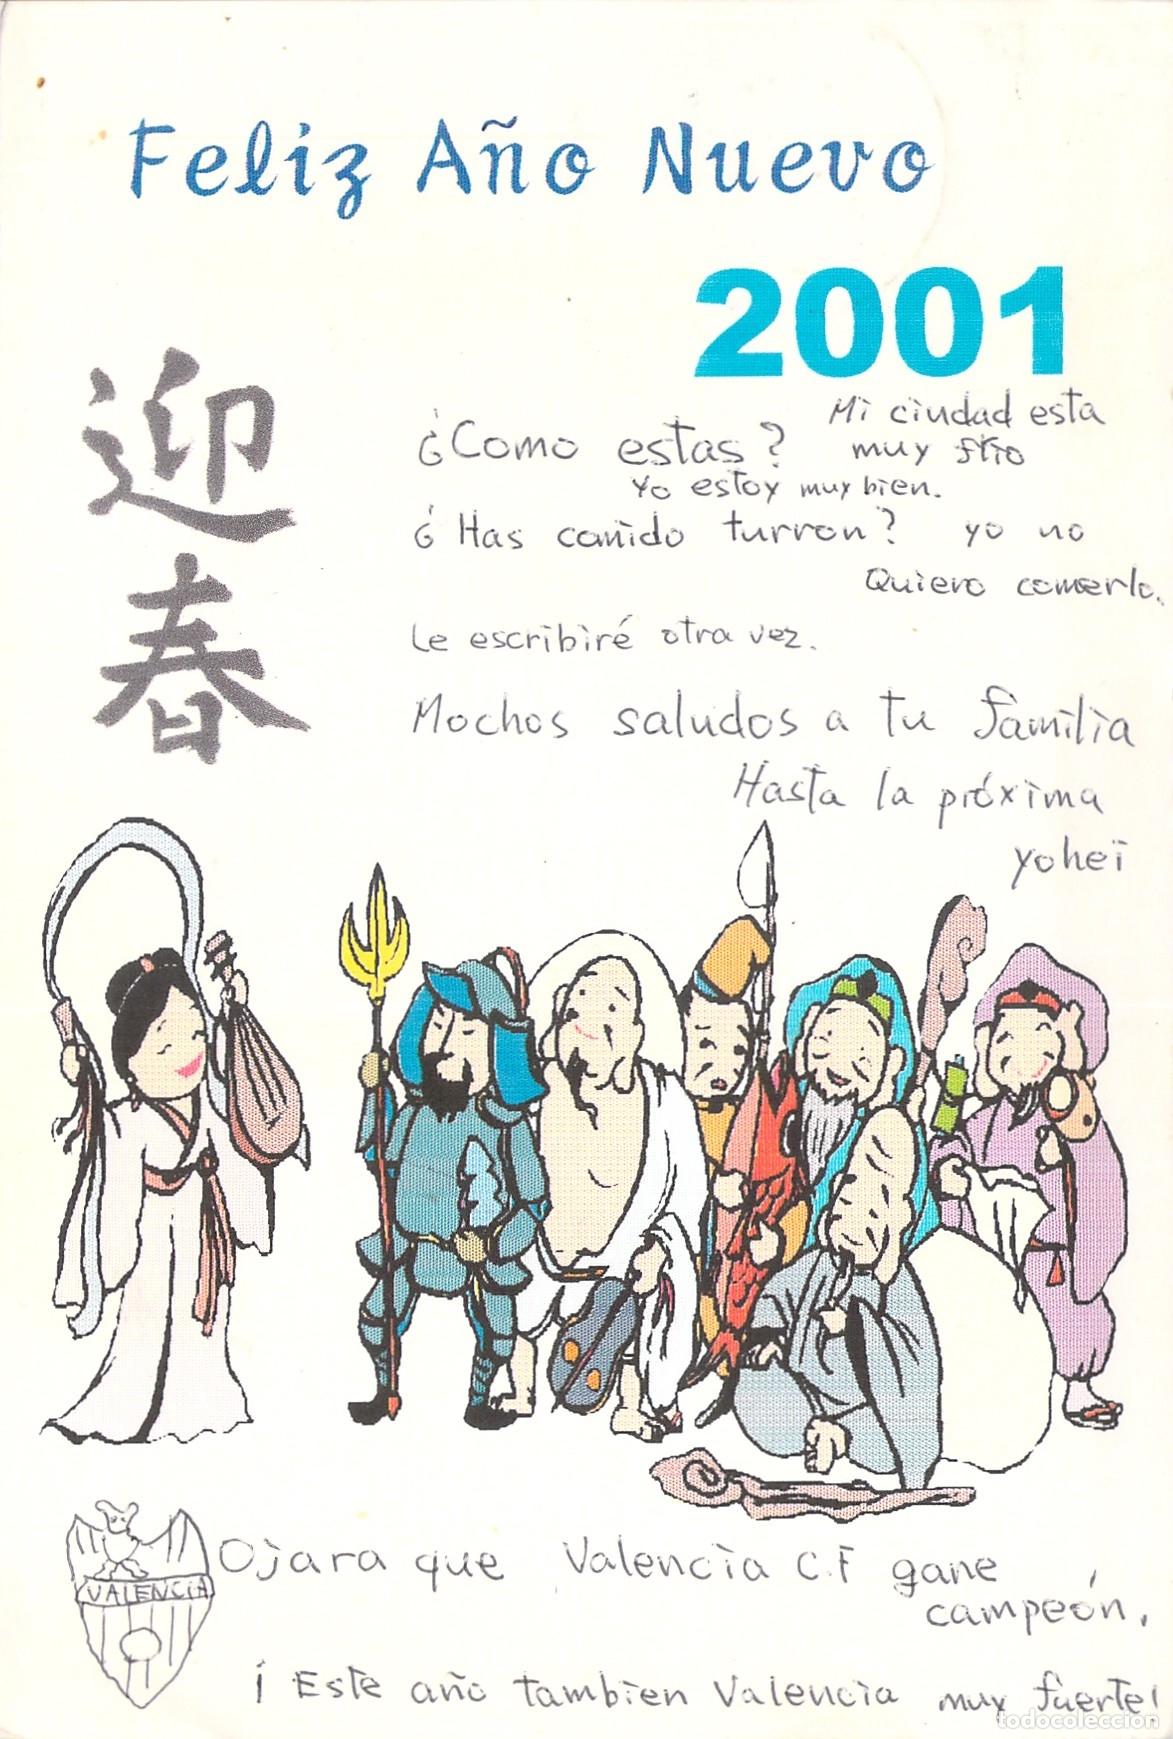 Feliz Año Nuevo
2001
迎春
Mi ciudad esta
muy frio
¿Como estas?
Yo estoy muy bien.
¿Has comido turron? yo no
Quiero comerlo.
Le escribiré otra vez.
Mochos saludos a tu familia
Hasta la próxima
yohei
VALENCIA
Ojara que Valencia C.F gane
campeón.
¡Este año tambien Valencia muy fuerte!
todocoleccion